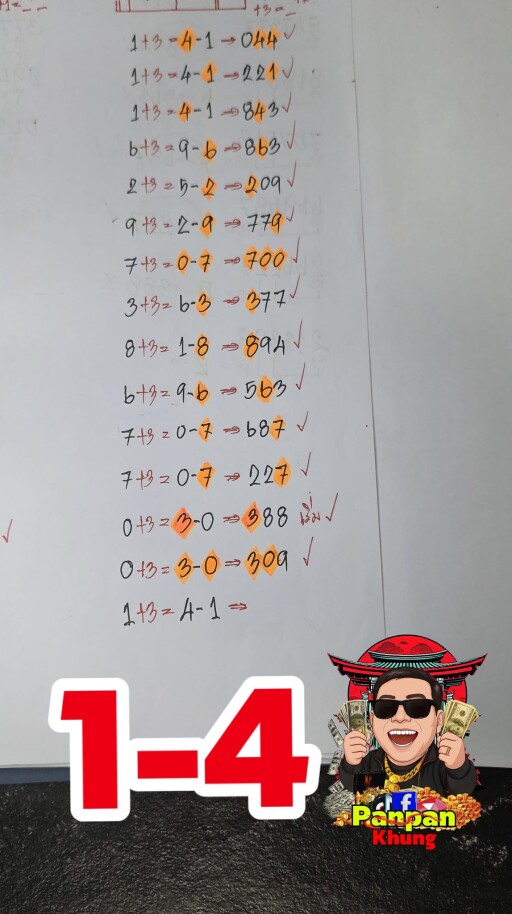 +3=_
1+3=4-1⇒044✓
1+3=4-1⇒221✓
1+3=4-1⇒843✓
6+3=9-6⇒863✓
2+3=5-2⇒209✓
9+3=2-9⇒779✓
7+3=0-7⇒700✓
3+3=6-3⇒377✓
8+3=1-8⇒894✓
6+3=9-6⇒563✓
7+3=0-7⇒687✓
7+3=0-7⇒227✓
0+3=3-0⇒388 เริ่ม✓
0+3=3-0⇒309✓
1+3=4-1⇒
1-4
Panpan
Khung